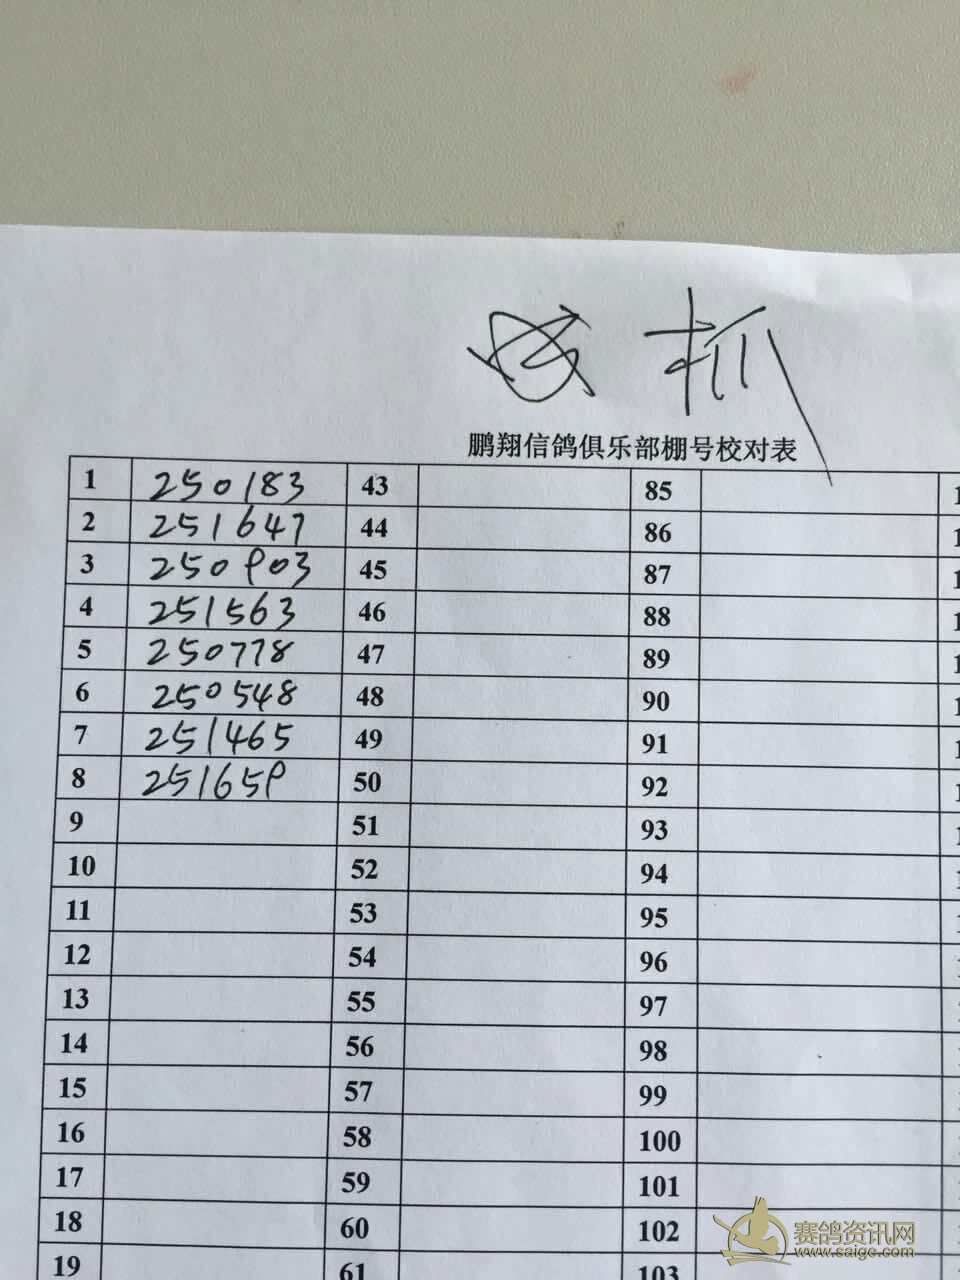 抓
鹏翔信鸽俱乐部棚号校对表
1 250183 43 85 1
2 251647 44 86 1
3 250903 45 87 1
4 251563 46 88 1
5 250778 47 89 1
6 250548 48 90 1
7 251465 49 91 1
8 251659 50 92 1
9 51 93 1
10 52 94
11 53 95
12 54 96
13 55 97
14 56 98
15 57 99
16 58 100
17 59 101
18 60 102
19 61 103
赛鸽资讯网
www.saige.com